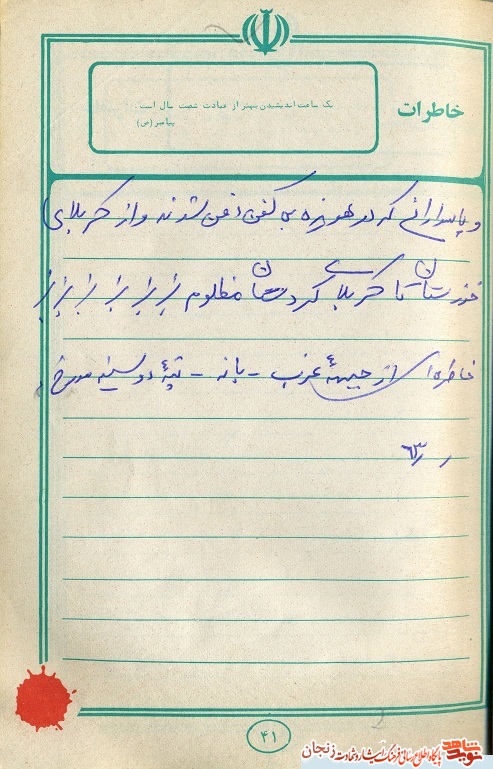 خاطرات
یک ساعت اندیشیدن بهتر از عبادت شصت سال است.
پیامبر (ص)
و پاسدارانی که در هویزه بی کفن دفن شدند و از کربلای
خوزستان تا کربلای کردستان مظلوم
خاطره‌ای از جبههٔ غرب - بانه - تپهٔ دوسینه مورخ
۶۳
۴۱
نوید شاهد
پایگاه اطلاع رسانی فرهنگ ایثار و شهادت زنجان